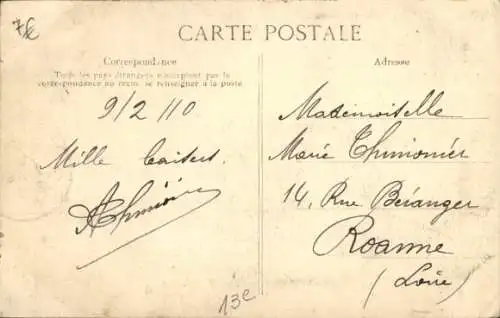 7€
CARTE POSTALE
Correspondance
Tous les pays étrangers n'acceptent pas la
correspondance au recto, se renseigner à la poste
9/2 110
Mille baisers.
AThimonier
Adresse
Mademoiselle
Marie Thimonier
14, Rue Béranger
Roanne
(Loire)
13e